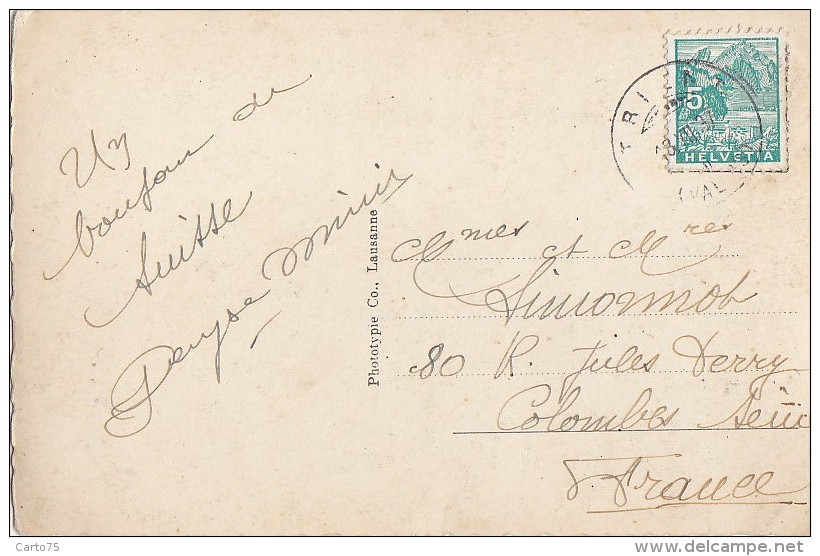 Un
bonjour de
Suisse
Denyse Mimi
Phototypie Co., Lausanne
5
HELVETIA
TRIENT
(VALAIS)
Mmes et Mrs
Simonnot
80 R. Jules Ferry
Colombes Seine
France
Carto75
delcampe.net